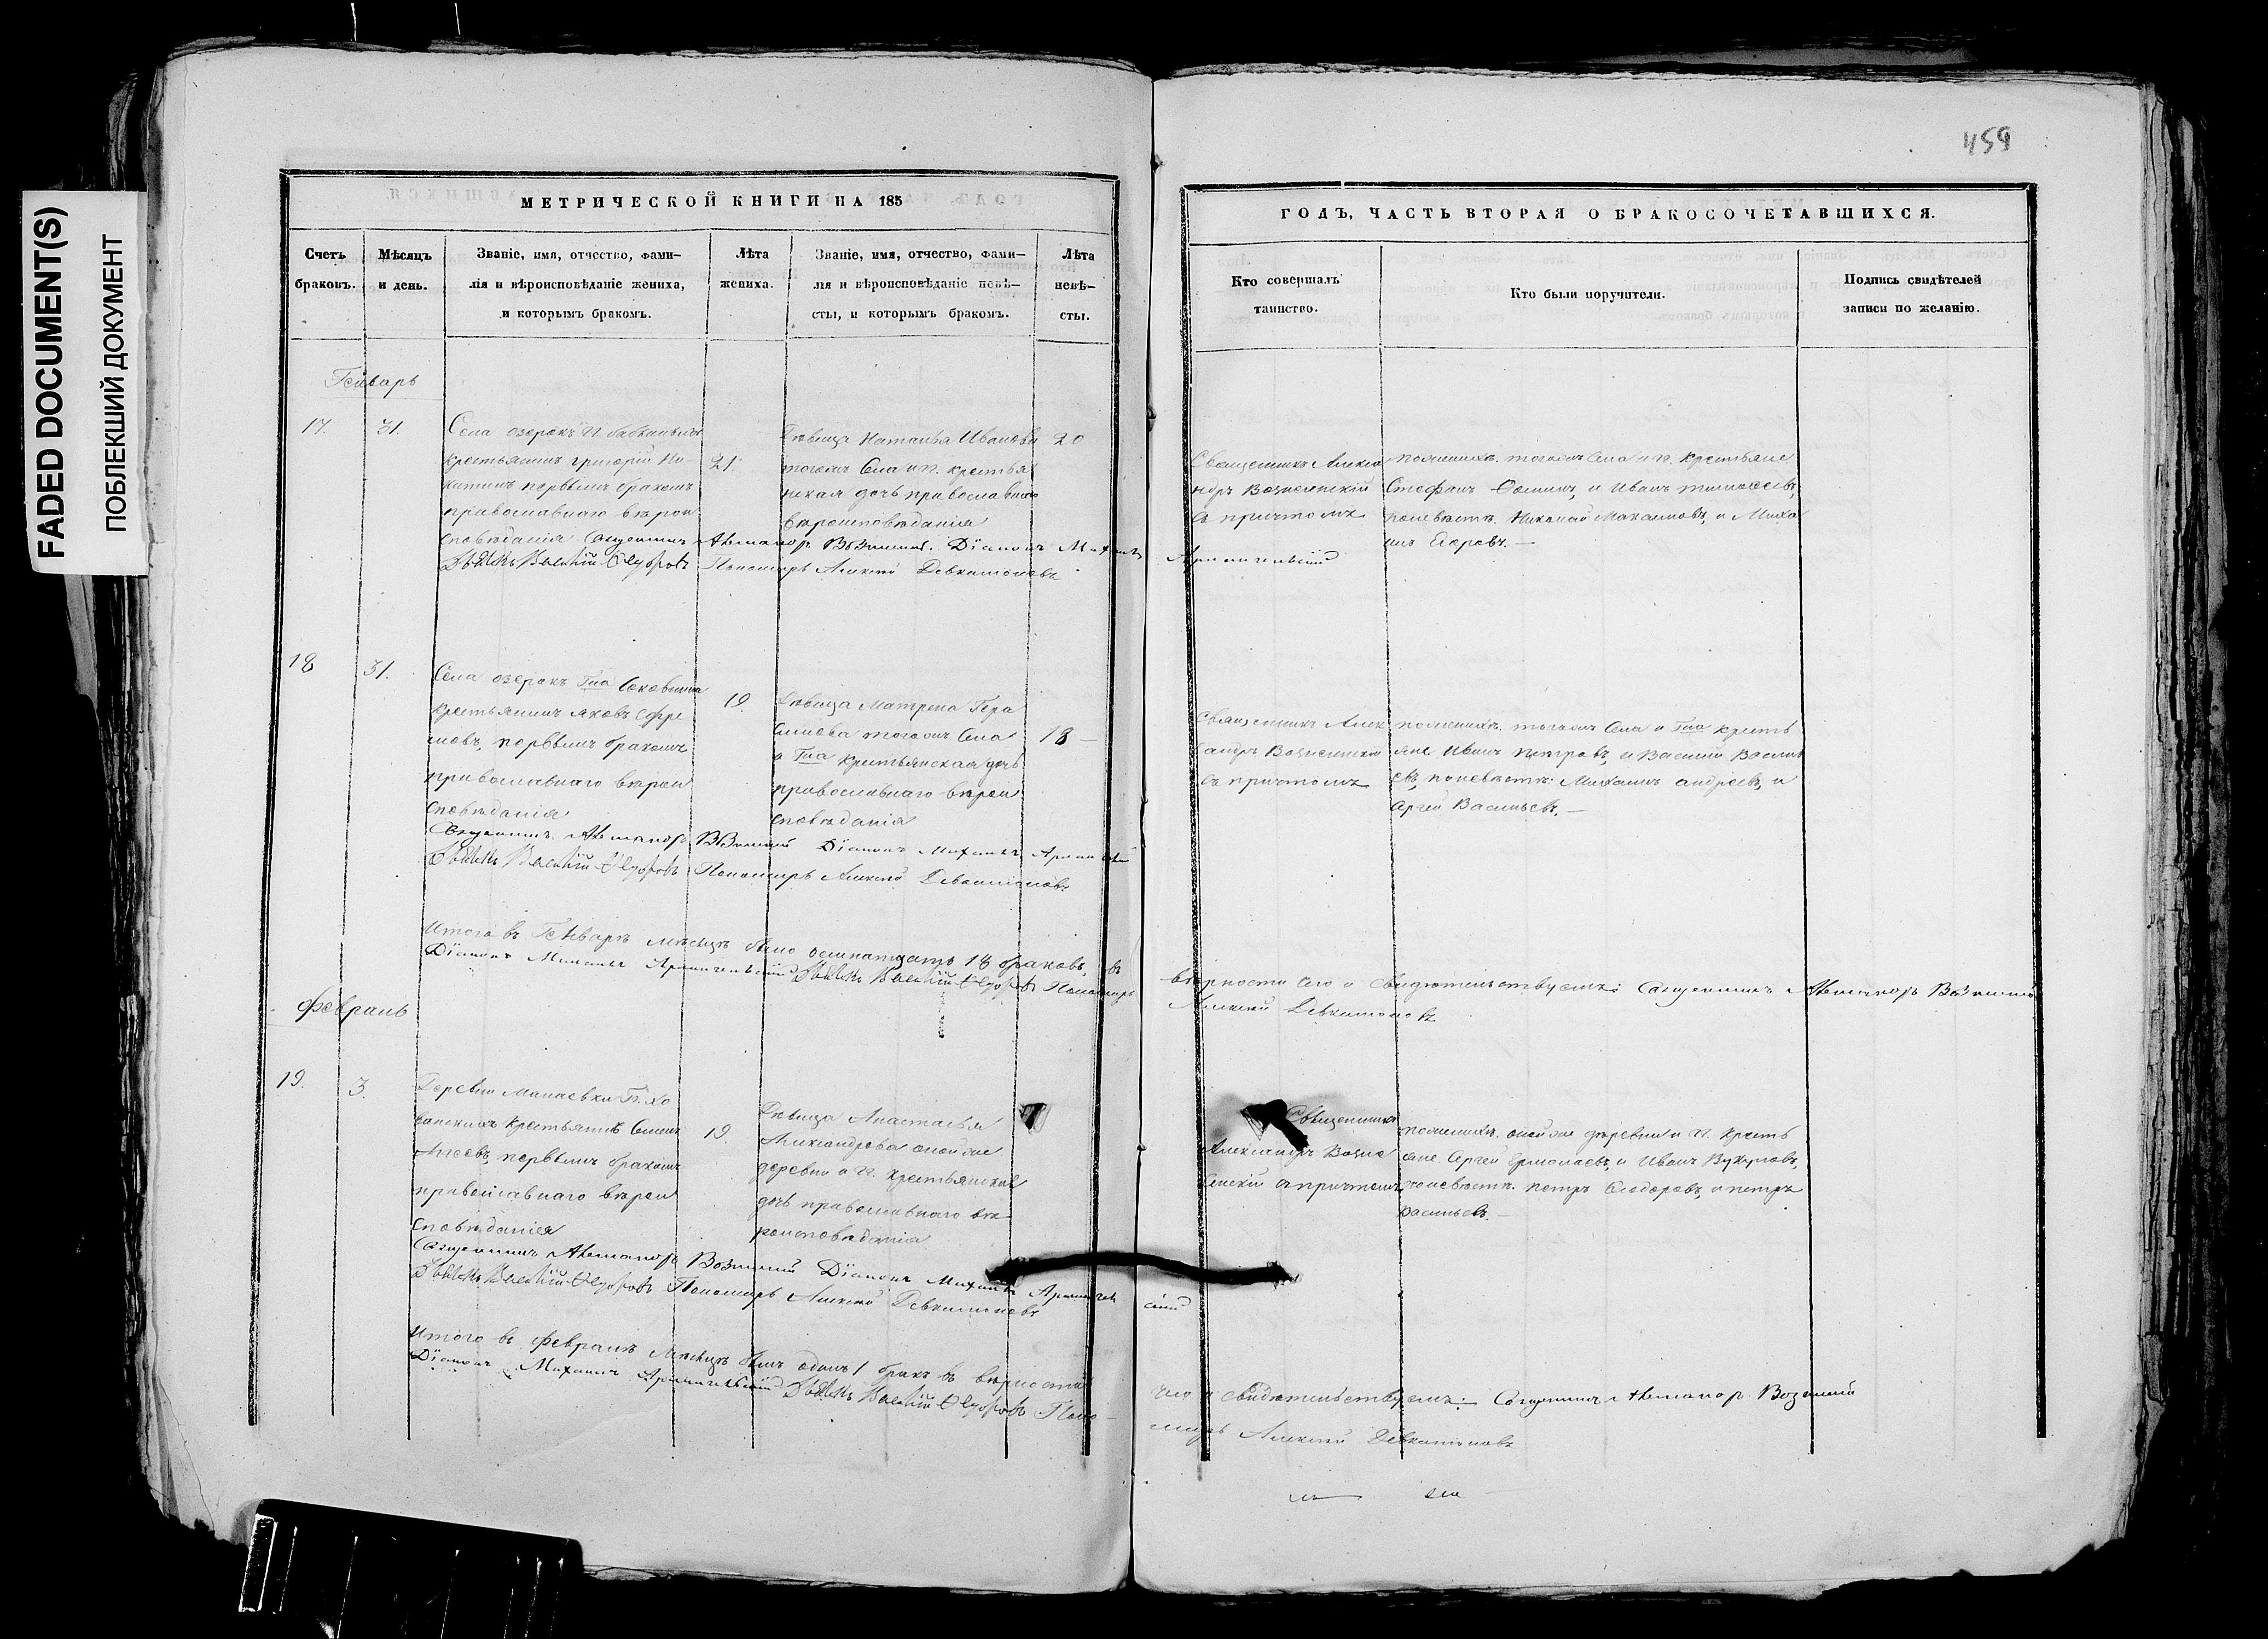 FADED DOCUMENT(S)
ПОБЛЕКШИЙ ДОКУМЕНТ
459
МЕТРИЧЕСКОЙ КНИГИ НА 185
Счетъ
браковъ.
Мѣсяцъ
и день.
Званіе, имя, отчество, фами-
лія и вѣроисповѣданіе жениха,
и которымъ бракомъ.
Лѣта
жениха.
Званіе, имя, отчество, фами-
лія и вѣроисповѣданіе невѣ-
сты, и которымъ бракомъ.
Лѣта
невѣ-
сты.
ГОДЪ, ЧАСТЬ ВТОРАЯ О БРАКОСОЧЕТАВШИХСЯ.
Кто совершалъ
таинство.
Кто были поручители.
Подпись свидѣтелей
записи по желанію.
Генварь
17.
31.
Села озерокъ Г.
крестьянинъ григорій Ни-
китинъ первымъ бракомъ
православнаго вѣрои
сповѣданія
21.
Дѣвица Наталья Иванова
тогожъ Села и Г. крестья
нская дочь православнаго
вѣроисповѣданія
20
Священникъ Алекса
ндръ Вознесенскій
съ причтомъ
пожених. тогожъ Села и Г. крестьяне
Стефанъ Фоминъ, и Иванъ тимофеевъ,
поневѣстѣ. Николай Максимовъ, и Миха
илъ Егоровъ.
Священникъ Александръ Вознесенскій. Діаконъ Михаилъ Архангельскій
Дьячекъ Василій Ѳедоровъ Пономарь Алексей
18
31.
Села озерокъ Гжа
крестьянинъ яковъ Ефре
мовъ, первымъ бракомъ
православнаго вѣрои
сповѣданія
19.
Дѣвица Матрена Гера
симова тогожъ Села
и Гжа крестьянская дочь
православнаго вѣрои
сповѣданія
18
Священникъ Алек
сандръ Вознесенскій
съ причтомъ
пожених. тогожъ Села и Гжа кресть
яне Иванъ петровъ, и Василій Василь
евъ, поневѣстѣ: Михаилъ андреевъ, и
Сергей Васильевъ.
Священникъ Александръ Вознесенскій Діаконъ Михаилъ Архангельскій
Дьячекъ Василій Ѳедоровъ Пономарь Алексей
Итого въ Генварѣ мѣсяцѣ было осмнатцать 18 браковъ, въ
вѣрности сего и свидѣтельствуемъ: Священникъ Александръ Вознесенскій
Діаконъ Михаилъ Архангельскій Дьячекъ Василій Ѳедоровъ Пономарь
Алексей
Февраль
19.
3.
Деревни Манаевки Г. Хо
ванскихъ крестьянинъ Семенъ
первымъ бракомъ
православнаго вѣрои
сповѣданія
19.
Дѣвица Анастасья
Александрова оной же
деревни и Г. крестьянская
дочь православнаго вѣ
роисповѣданія
Священникъ
Александръ Возне
сенскій съ причтомъ
пожених. оной же деревни и Г. кресть
яне Сергей Ермолаевъ, и Иванъ Вукуловъ,
поневѣстѣ. петръ Сидоровъ, и петръ
Васильевъ.
Священникъ Александръ Вознесенскій Діаконъ Михаилъ Архангельскій
Дьячекъ Василій Ѳедоровъ Пономарь Алексей
Итого въ Февралѣ мѣсяцѣ былъ одинъ 1 бракъ въ вѣрности
чего и свидѣтельствуемъ: Священникъ Александръ Вознесенскій
Діаконъ Михаилъ Архангельскій Дьячекъ Василій Ѳедоровъ Поно-
марь Алексей